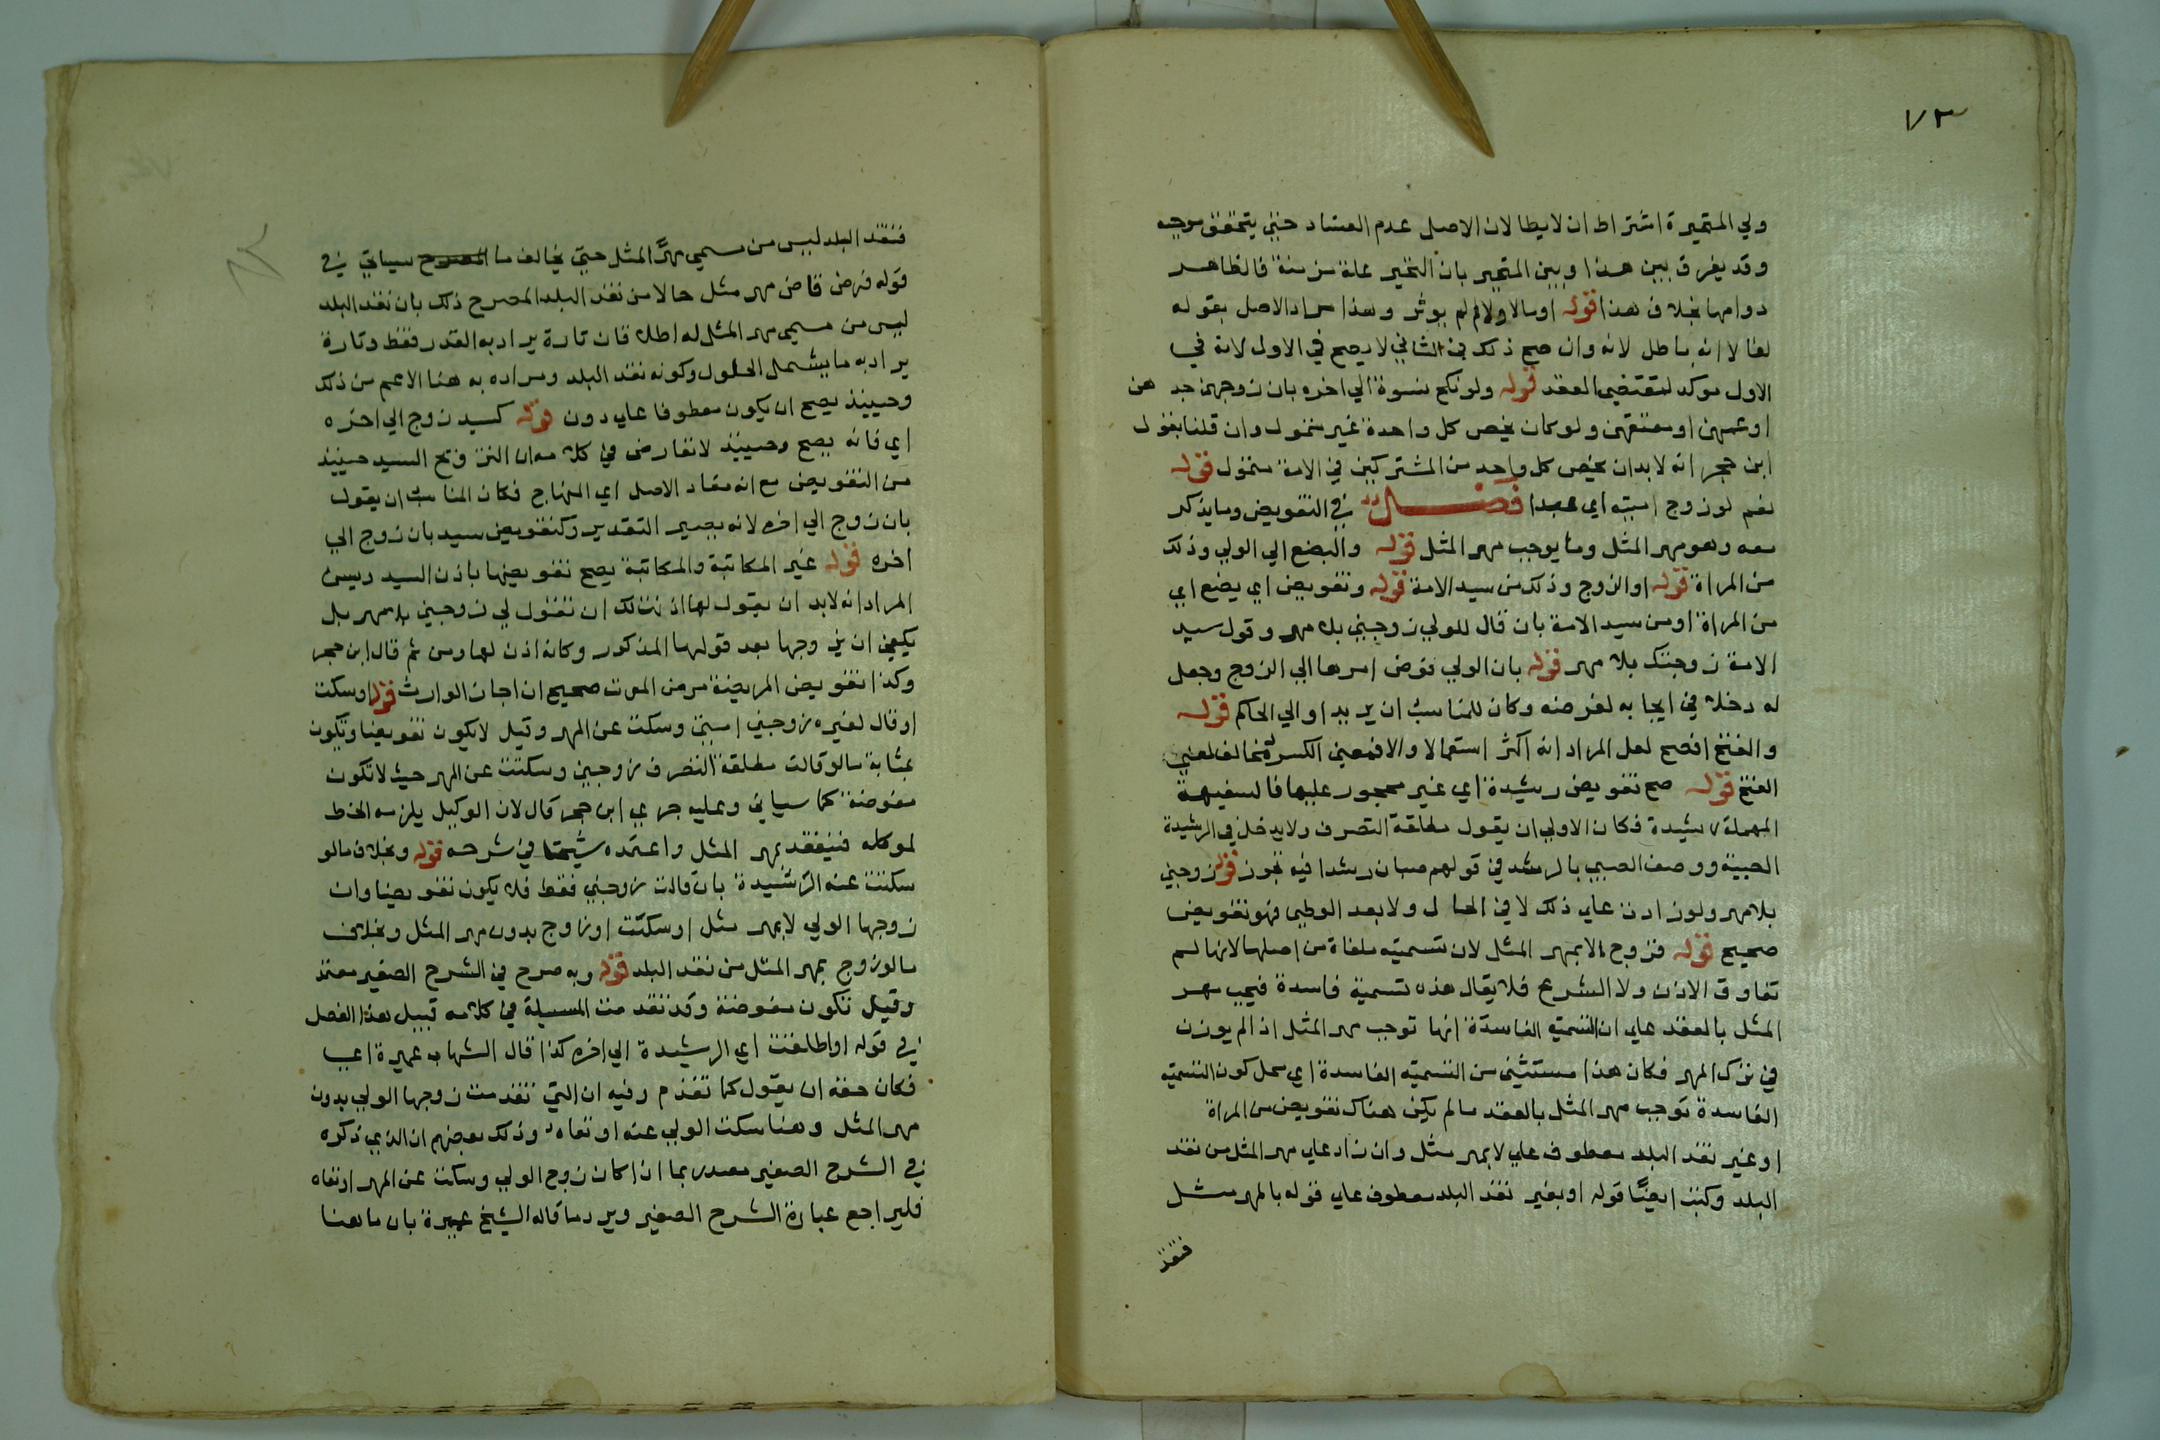 ٧٣
ولي المتحيرة اشتراط ان لا يطا لان الاصل عدم الفساد حتي يتحقق موجبه
وقد يفرق بين هذا وبين المتحير بان التحير علة مزمنة فالظاهر
دوامها بخلاف هذا قوله اوما لا ولا لم يوثر وهذا مراد الاصل بقوله
لغا لا انه باطل لانه وان صح ذلك في الثاني لا يصح في الاول لانه في
الاول موكد لمقتضي العقد قوله ولو نكح نسوة الي اخره بان زوجهن جدهن
او عمهن او معتقهن ولو كان يخص كل واحدة غير متمول وان قلنا بقول
ابن حجر انه لابد ان يخص كل واحد من المشتركين في الامة متمول قوله
نعم لو زوج امته اي عبدا فصل في التفويض وما يذكر
معه وهو مهر المثل وما يوجب مهر المثل قوله والبضع الي الولي وذلك
من المراة قوله او الزوج وذلك من سيد الامة قوله وتفويض اي بضع اي
من المراة او من سيد الامة بان قال للولي زوجني بلا مهر وقول سيد
الامة زوجتك بلا مهر قوله بان الولي فوض امرها الي الزوج وجعل
له دخلا في ايجابه لفرضه وكان المناسب ان يزيد او الي الحاكم قوله
والفتح افصح لعل المراد انه اكثر استعمالا والا فمعني الكسر مخالف لمعني
الفتح قوله صح تفويض رشيدة اي غير محجور عليها فالسفيهة
المهملة رشيدة فكان الاولي ان يقول مطلقة التصرف ولا يدخل في الرشيدة
الصبية ووصف الصبي بالرشد في قولهم صبيان رشدا فيه تجوز قوله زوجني
بلا مهر ولو زادت علي ذلك لا في الحال ولا بعد الوطي فهو تفويض
صحيح قوله فزوج الا بمهر المثل لان تسميته ملغاة من اصلها لانها لم
توافق الاذن ولا الشرع فلا يقال هذه تسمية فاسدة فيجب مهر
المثل بالعقد علي ان التسمية الفاسدة انها توجب مهر المثل اذا لم يوذن
في ترك المهر فكان هذا مستثني من التسمية الفاسدة اي محل كون التسمية
الفاسدة توجب مهر المثل بالعقد ما لم يكن هناك تفويض من المراة
او غير نقد البلد معطوف علي لا بمهر مثل وان زاد علي مهر المثل من نقد
البلد وكتب ايضا قوله او بغير نقد البلد معطوف علي قوله بالمهر مثل
فنقد
فنقد البلد ليس من مسمي مهر المثل حتي يخالف ما سياتي في
قوله فرض قاض مهر مثل حالا من نقد البلد المصرح ذلك بان نقد البلد
ليس من مسمي مهر المثل له اطلاقان تارة يراد به القدر فقط وتارة
يراد به ما يشمل الحلول وكونه نقد البلد ومراده به هنا الاعم من ذلك
وحينيذ يصح ان يكون معطوفا علي دون قوله كسيد زوج الي اخره
اي فانه يصح وحينيذ لا تعارض في كلامه ان التزويج السيد حينيذ
من التفويض مع انه مفاد الاصل اي المنهاج فكان المناسب ان يقول
بان زوج الي اخره لانه يصير التقدير وكتفويض سيد بان زوج الي
اخره قوله غير المكاتبة والمكاتبة يصح تفويضها باذن السيد وليس
المراد انه لابد ان يقول لها اذنت لك ان تقول لي زوجني بلا مهر بل
يكفي ان يزوجها بعد قولها المذكور وكانه اذن لها ومن ثم قال ابن حجر
وكذا تفويض المريضة مرض الموت صحيح ان اجاز الوارث قوله او سكت
او قال لغيره زوجني امتي وسكت عن المهر وقيل لا يكون تفويضا وتكون
بمثابة ما لو قالت مطلقة التصرف زوجني وسكتت عن المهر حيث لا تكون
مفوضة كما سياتي وعليه جري ابن حجر قال لان الوكيل يلزمه الحظ
لموكله فينعقد بمهر المثل واعتمده شيخنا في شرحه قوله وبخلاف ما لو
سكتت عنه الرشيدة بان قالت زوجني فقط فلا يكون تفويضا وان
زوجها الولي لا بمهر مثل او سكتت او زاوج بدون مهر المثل وبخلاف
ما لو زوج بمهر المثل من نقد البلد قوله وبه صرح في الشرح الصغير معتمد
وقيل تكون مفوضة وقد تقدمت المسيلة في كلامه قبيل هذا الفصل
في قوله او اطلقت اي الرشيدة الي اخره كذا قال الشهاب عميرة اعيا
فكان حقه ان يقول كما تقدم وفيه ان التي تقدمت زوجها الولي بدون
مهر المثل وهنا سكت الولي عنه او نفاه وذلك بعضهم ان الذي ذكره
في الشرح الصغير مصدر بما اذا كان زوج الولي وسكت عن المهر او نفاه
فليراجع عبارة الشرح الصغير ويرد ما قاله الشيخ عميرة بان ما هنا